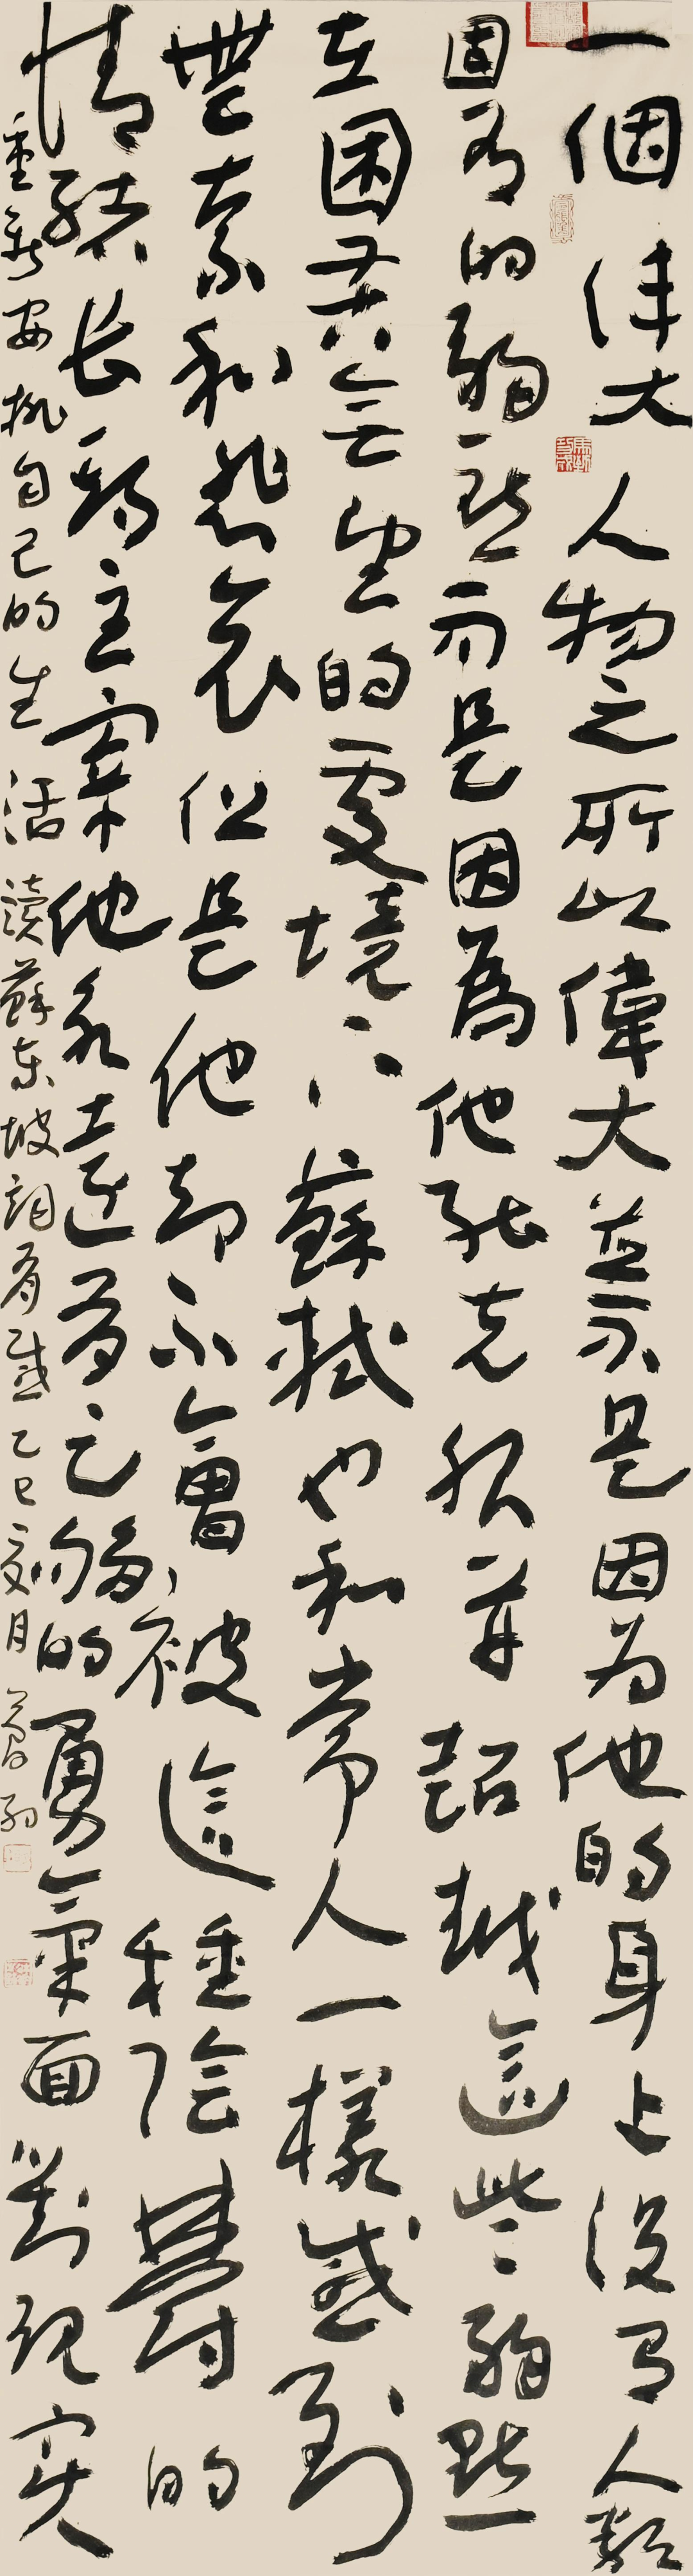 一個伟大人物之所以偉大並不是因为他的身上没有人類
固有的弱點而是因為他能克服并超越這些弱點
在困苦無望的處境下蘇軾也和常人一樣感到
無奈和悲哀但是他却不會被這種陰鬱的
情緒长期主宰他永遠有足够的勇氣面對現实
重新安排自己的生活讀蘇東坡詞有感乙巳夏月